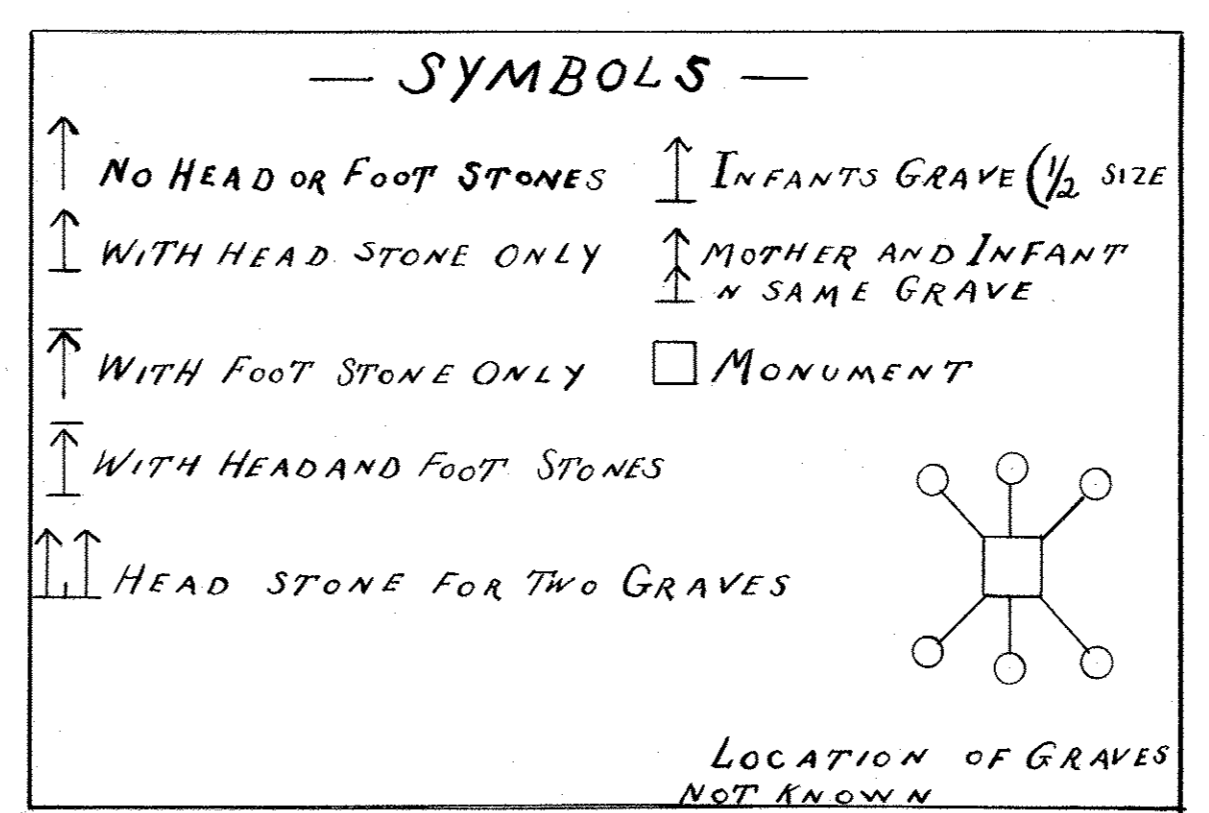 — SYMBOLS —
NO HEAD OR FOOT STONES
WITH HEAD STONE ONLY
WITH FOOT STONE ONLY
WITH HEAD AND FOOT STONES
HEAD STONE FOR TWO GRAVES
INFANTS GRAVE (1/2 SIZE
MOTHER AND INFANT
N SAME GRAVE
MONUMENT
LOCATION OF GRAVES
NOT KNOWN